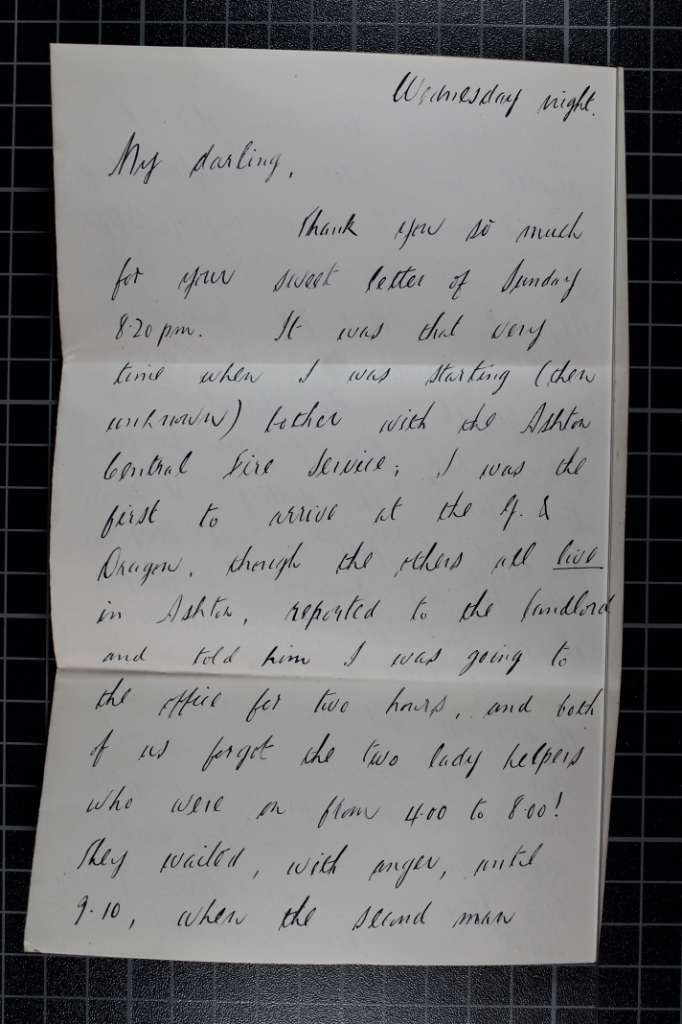 Wednesday night.
My darling,
Thank you so much
for your sweet letter of Sunday
8.20 pm. It was that very
time when I was starting (then
unknown) bother with the Ashton
Central Fire Service; I was the
first to arrive at the G. &
Dragon, though the others all live
in Ashton, reported to the landlord
and told him I was going to
the office for two hours, and both
of us forgot the two lady helpers
who were on from 4.00 to 8.00!
They waited, with anger, until
9.10, when the second man